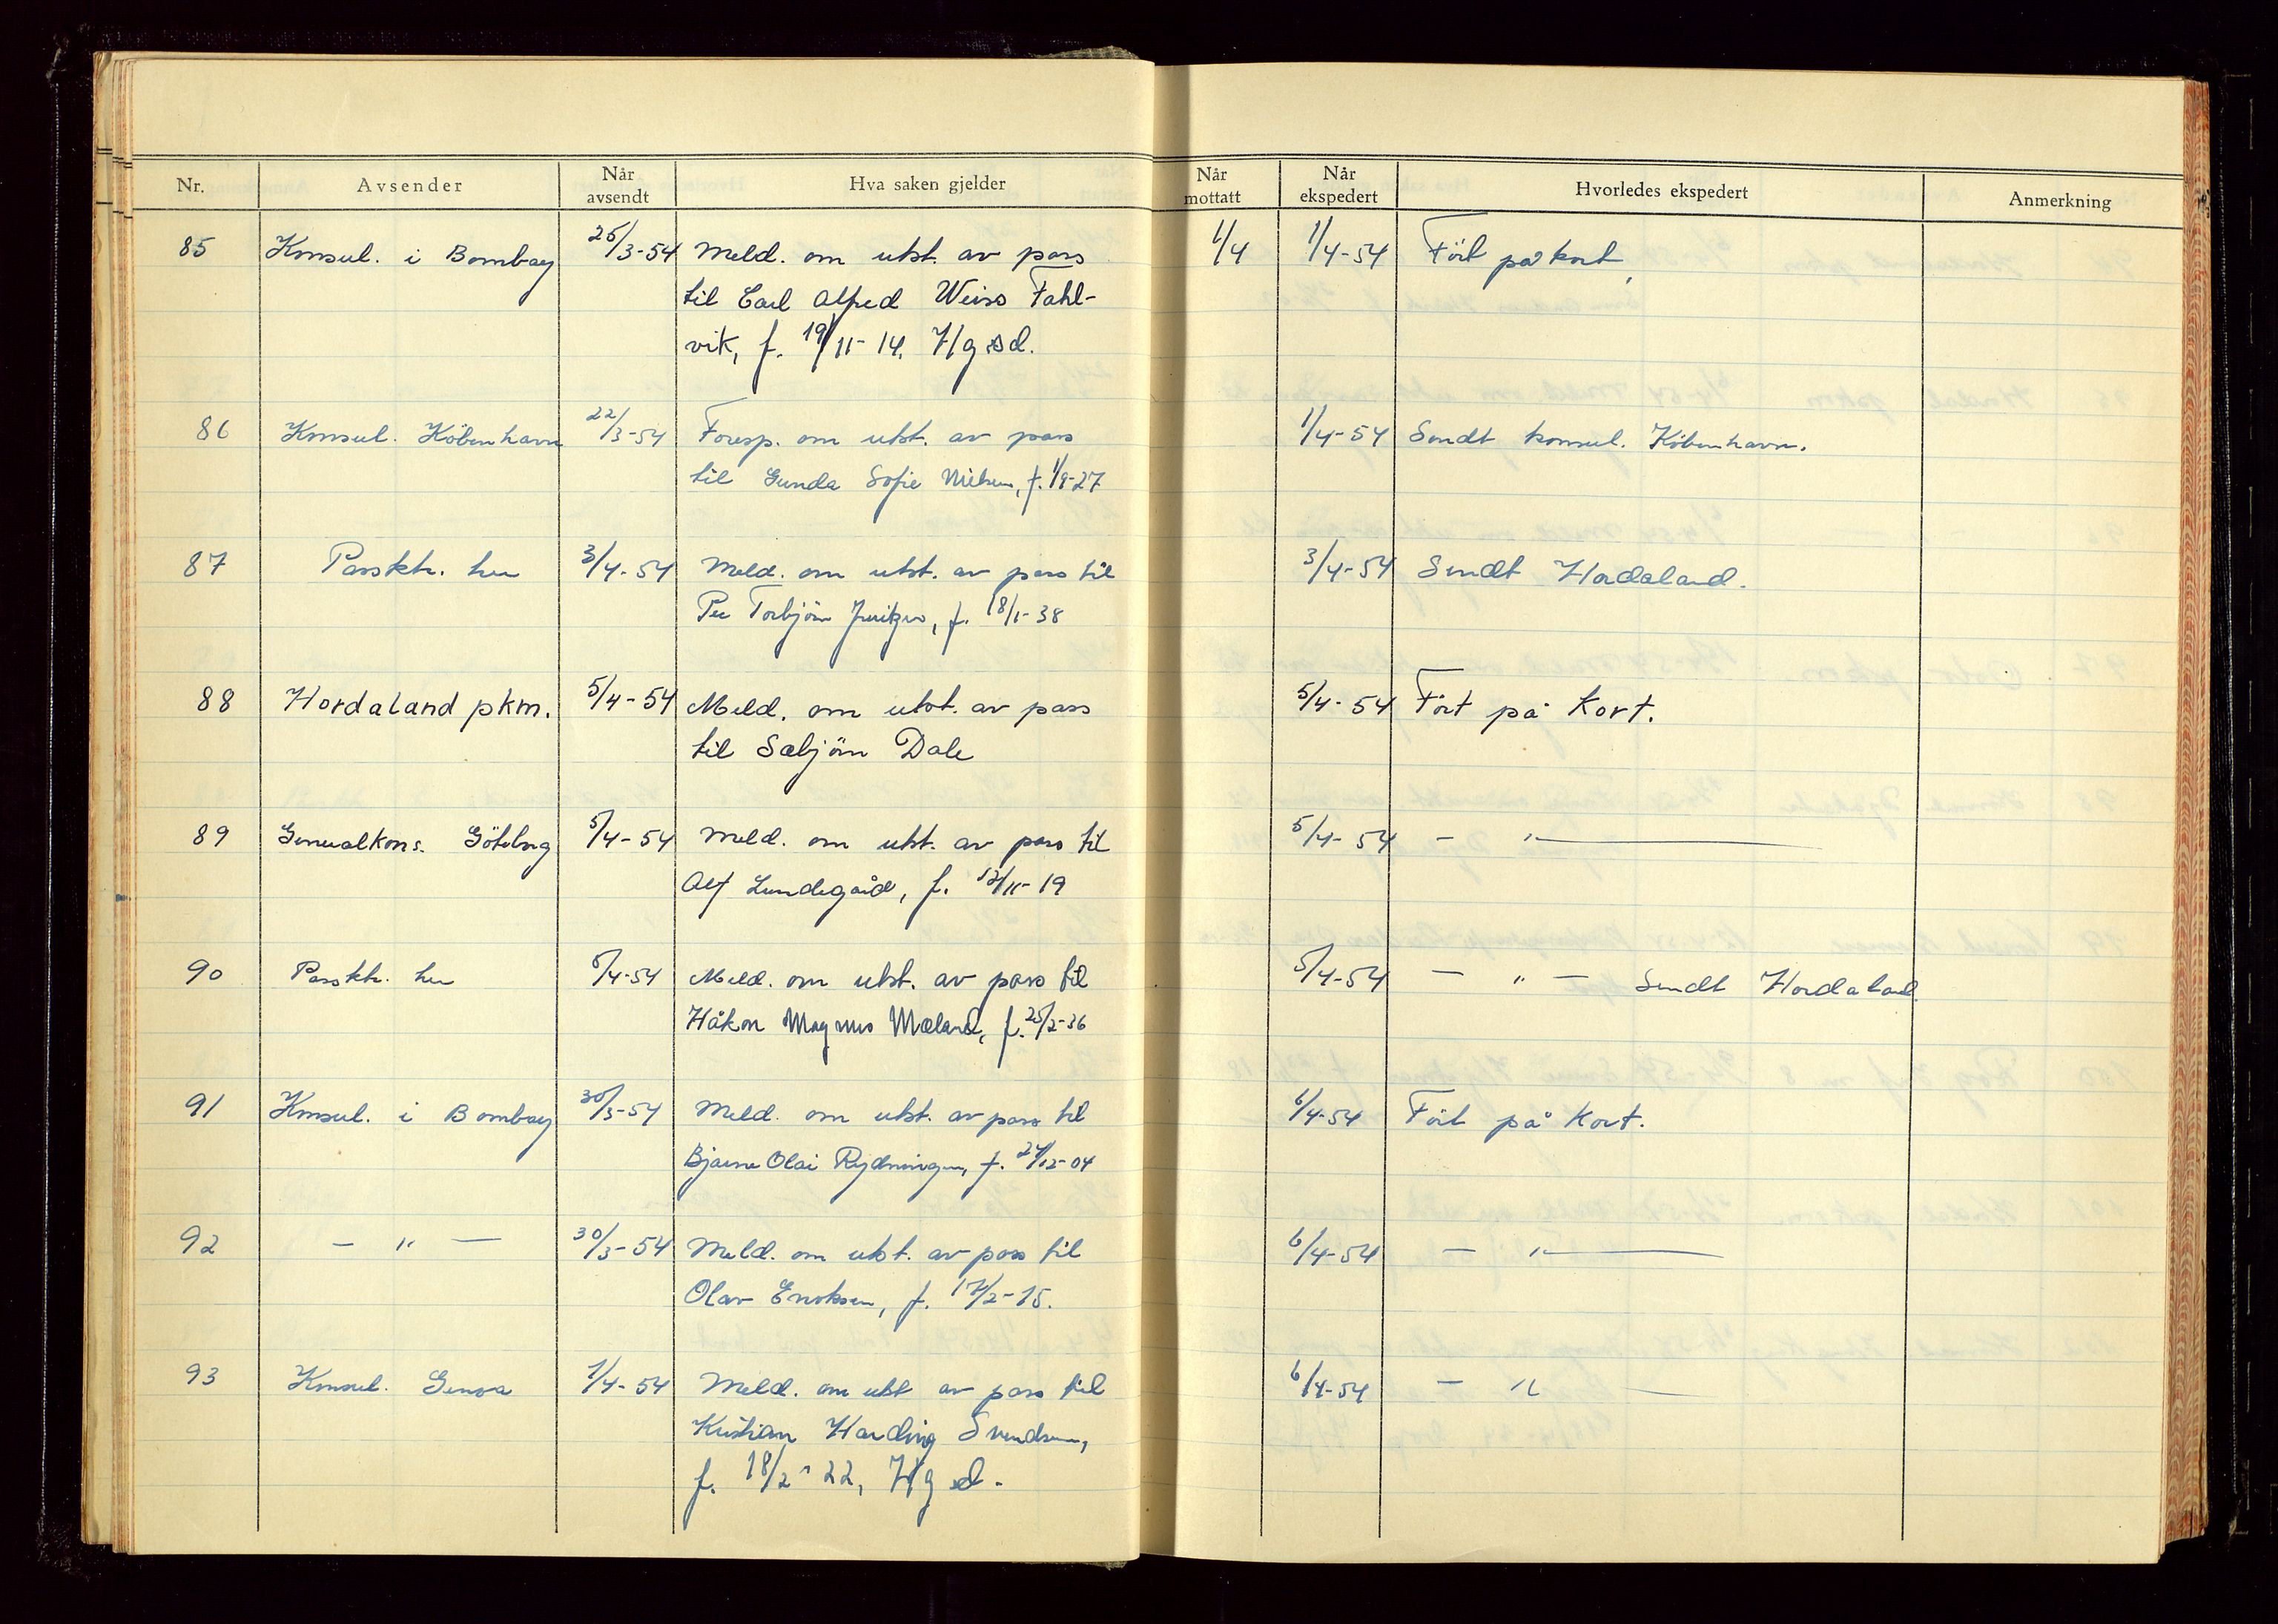 Nr. Avsender Når avsendt Hva saken gjelder Når mottatt Når ekspedert Hvorledes ekspedert Anmerkning
85 Konsul. i Bombay 25/3-54 Meld. om utst. av pass 1/4 1/4-54 Ført på kort
til Carl Alfred Weiss Fahl-
vik, f. 19/11-14. Hgsd.
86 Konsul. København 22/3-54 Foresp. om utst. av pass 1/4-54 Sendt konsul. København.
til Gunda Sofie Nilsen, f. 1/9-27
87 Passktr. her 3/4-54 Meld. om utst. av pass til 3/4-54 Sendt Hordaland.
Per Torbjörn, f. 18/1-38
88 Hordaland pkm. 5/4-54 Meld. om utst. av pass 5/4-54 Ført på Kort.
til Sæbjörn Dale
89 Generalkons. Göteborg 5/4-54 Meld. om utst. av pass til 5/4-54 — " —
Alf Lundegård, f. 12/11-19
90 Passktr. her 5/4-54 Meld. om utst. av pass til 5/4-54 — " — Sendt Hordaland
Håkon Magnus Mæland, f. 25/2-36
91 Konsul. i Bombay 30/3-54 Meld. om utst. av pass til 6/4-54 Ført på Kort.
Bjarne Olai Rydningen, f. 24/12-04
92 — " — 30/3-54 Meld. om utst. av pass til 6/4-54 — " —
Olav Enoksen, f. 17/2-15.
93 Konsul. Genova 1/4-54 Meld. om utst av pass til 6/4-54 — " —
Kristian Harding Svendsen,
f. 18/2-22, Hgsd.